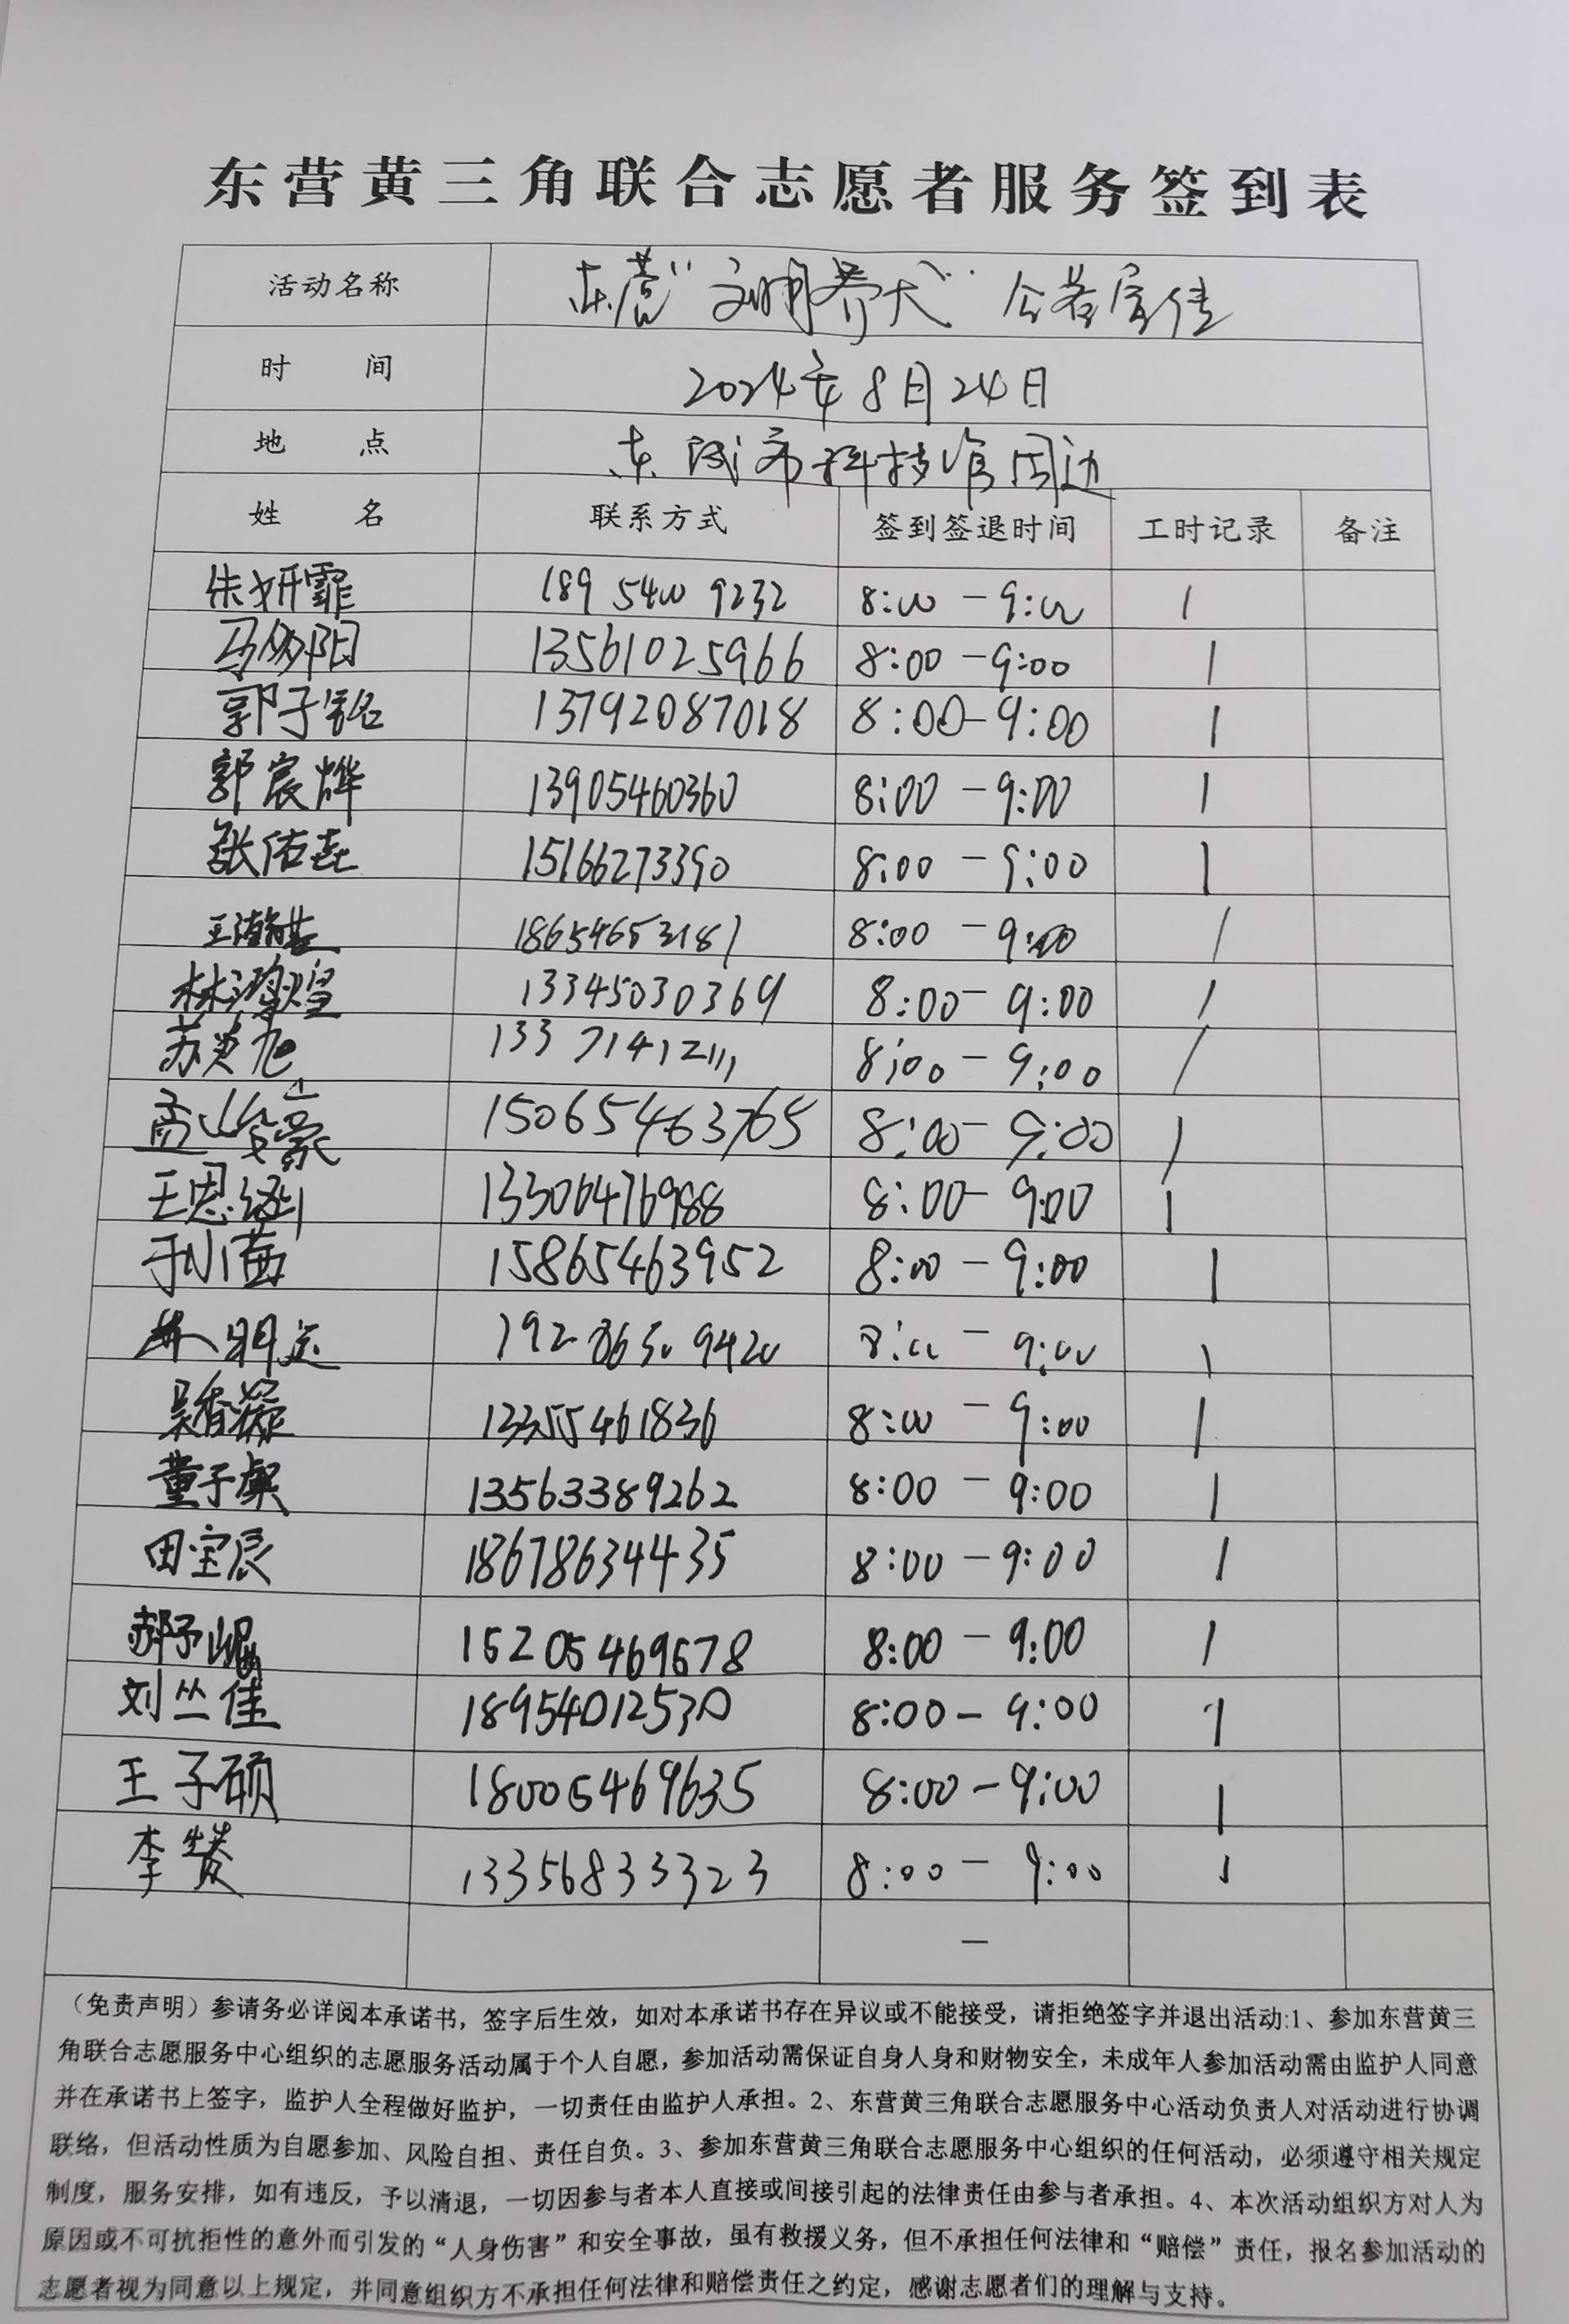 东营黄三角联合志愿者服务签到表
活动名称 东营“文明养犬”公益宣传
时 间 2024年8月24日
地 点 东城市科技馆周边
姓 名 联系方式 签到签退时间 工时记录 备注
朱妍霏 189 5400 9232 8:00 - 9:00 1
马 阳 13561025966 8:00 - 9:00 1
郭子铭 13792087018 8:00-9:00 1
郭宸烨 13905460360 8:00 - 9:00 1
张佑喆 15166273390 8:00 - 9:00 1
王瀚 8:00 - 9:00 1
林 煌 13345030369 8:00 - 9:00 1
苏 旭 133 71412111 8:00 - 9:00 1
孟 豪 15065463765 8:00 - 9:00 1
王恩 13306476988 8:00 - 9:00 1
于小茜 15865463952 8:00 - 9:00 1
明 192 8650 9420 8:00 - 9:00 1
吴香凝 13355461836 8:00 - 9:00 1
董子 13563389262 8:00 - 9:00 1
田宝辰 18678634435 8:00 - 9:00 1
郝予崐 15205469678 8:00 - 9:00 1
刘丛佳 18954012530 8:00 - 9:00 1
王子硕 18005469635 8:00 - 9:00 1
李赞 13356833323 8:00 - 9:00 1
-
（免责声明）参请务必详阅本承诺书，签字后生效，如对本承诺书存在异议或不能接受，请拒绝签字并退出活动:1、参加东营黄三
角联合志愿服务中心组织的志愿服务活动属于个人自愿，参加活动需保证自身人身和财物安全，未成年人参加活动需由监护人同意
并在承诺书上签字，监护人全程做好监护，一切责任由监护人承担。2、东营黄三角联合志愿服务中心活动负责人对活动进行协调
联络，但活动性质为自愿参加、风险自担、责任自负。3、参加东营黄三角联合志愿服务中心组织的任何活动，必须遵守相关规定
制度，服务安排，如有违反，予以清退，一切因参与者本人直接或间接引起的法律责任由参与者承担。4、本次活动组织方对人为
原因或不可抗拒性的意外而引发的“人身伤害”和安全事故，虽有救援义务，但不承担任何法律和“赔偿”责任，报名参加活动的
志愿者视为同意以上规定，并同意组织方不承担任何法律和赔偿责任之约定，感谢志愿者们的理解与支持。